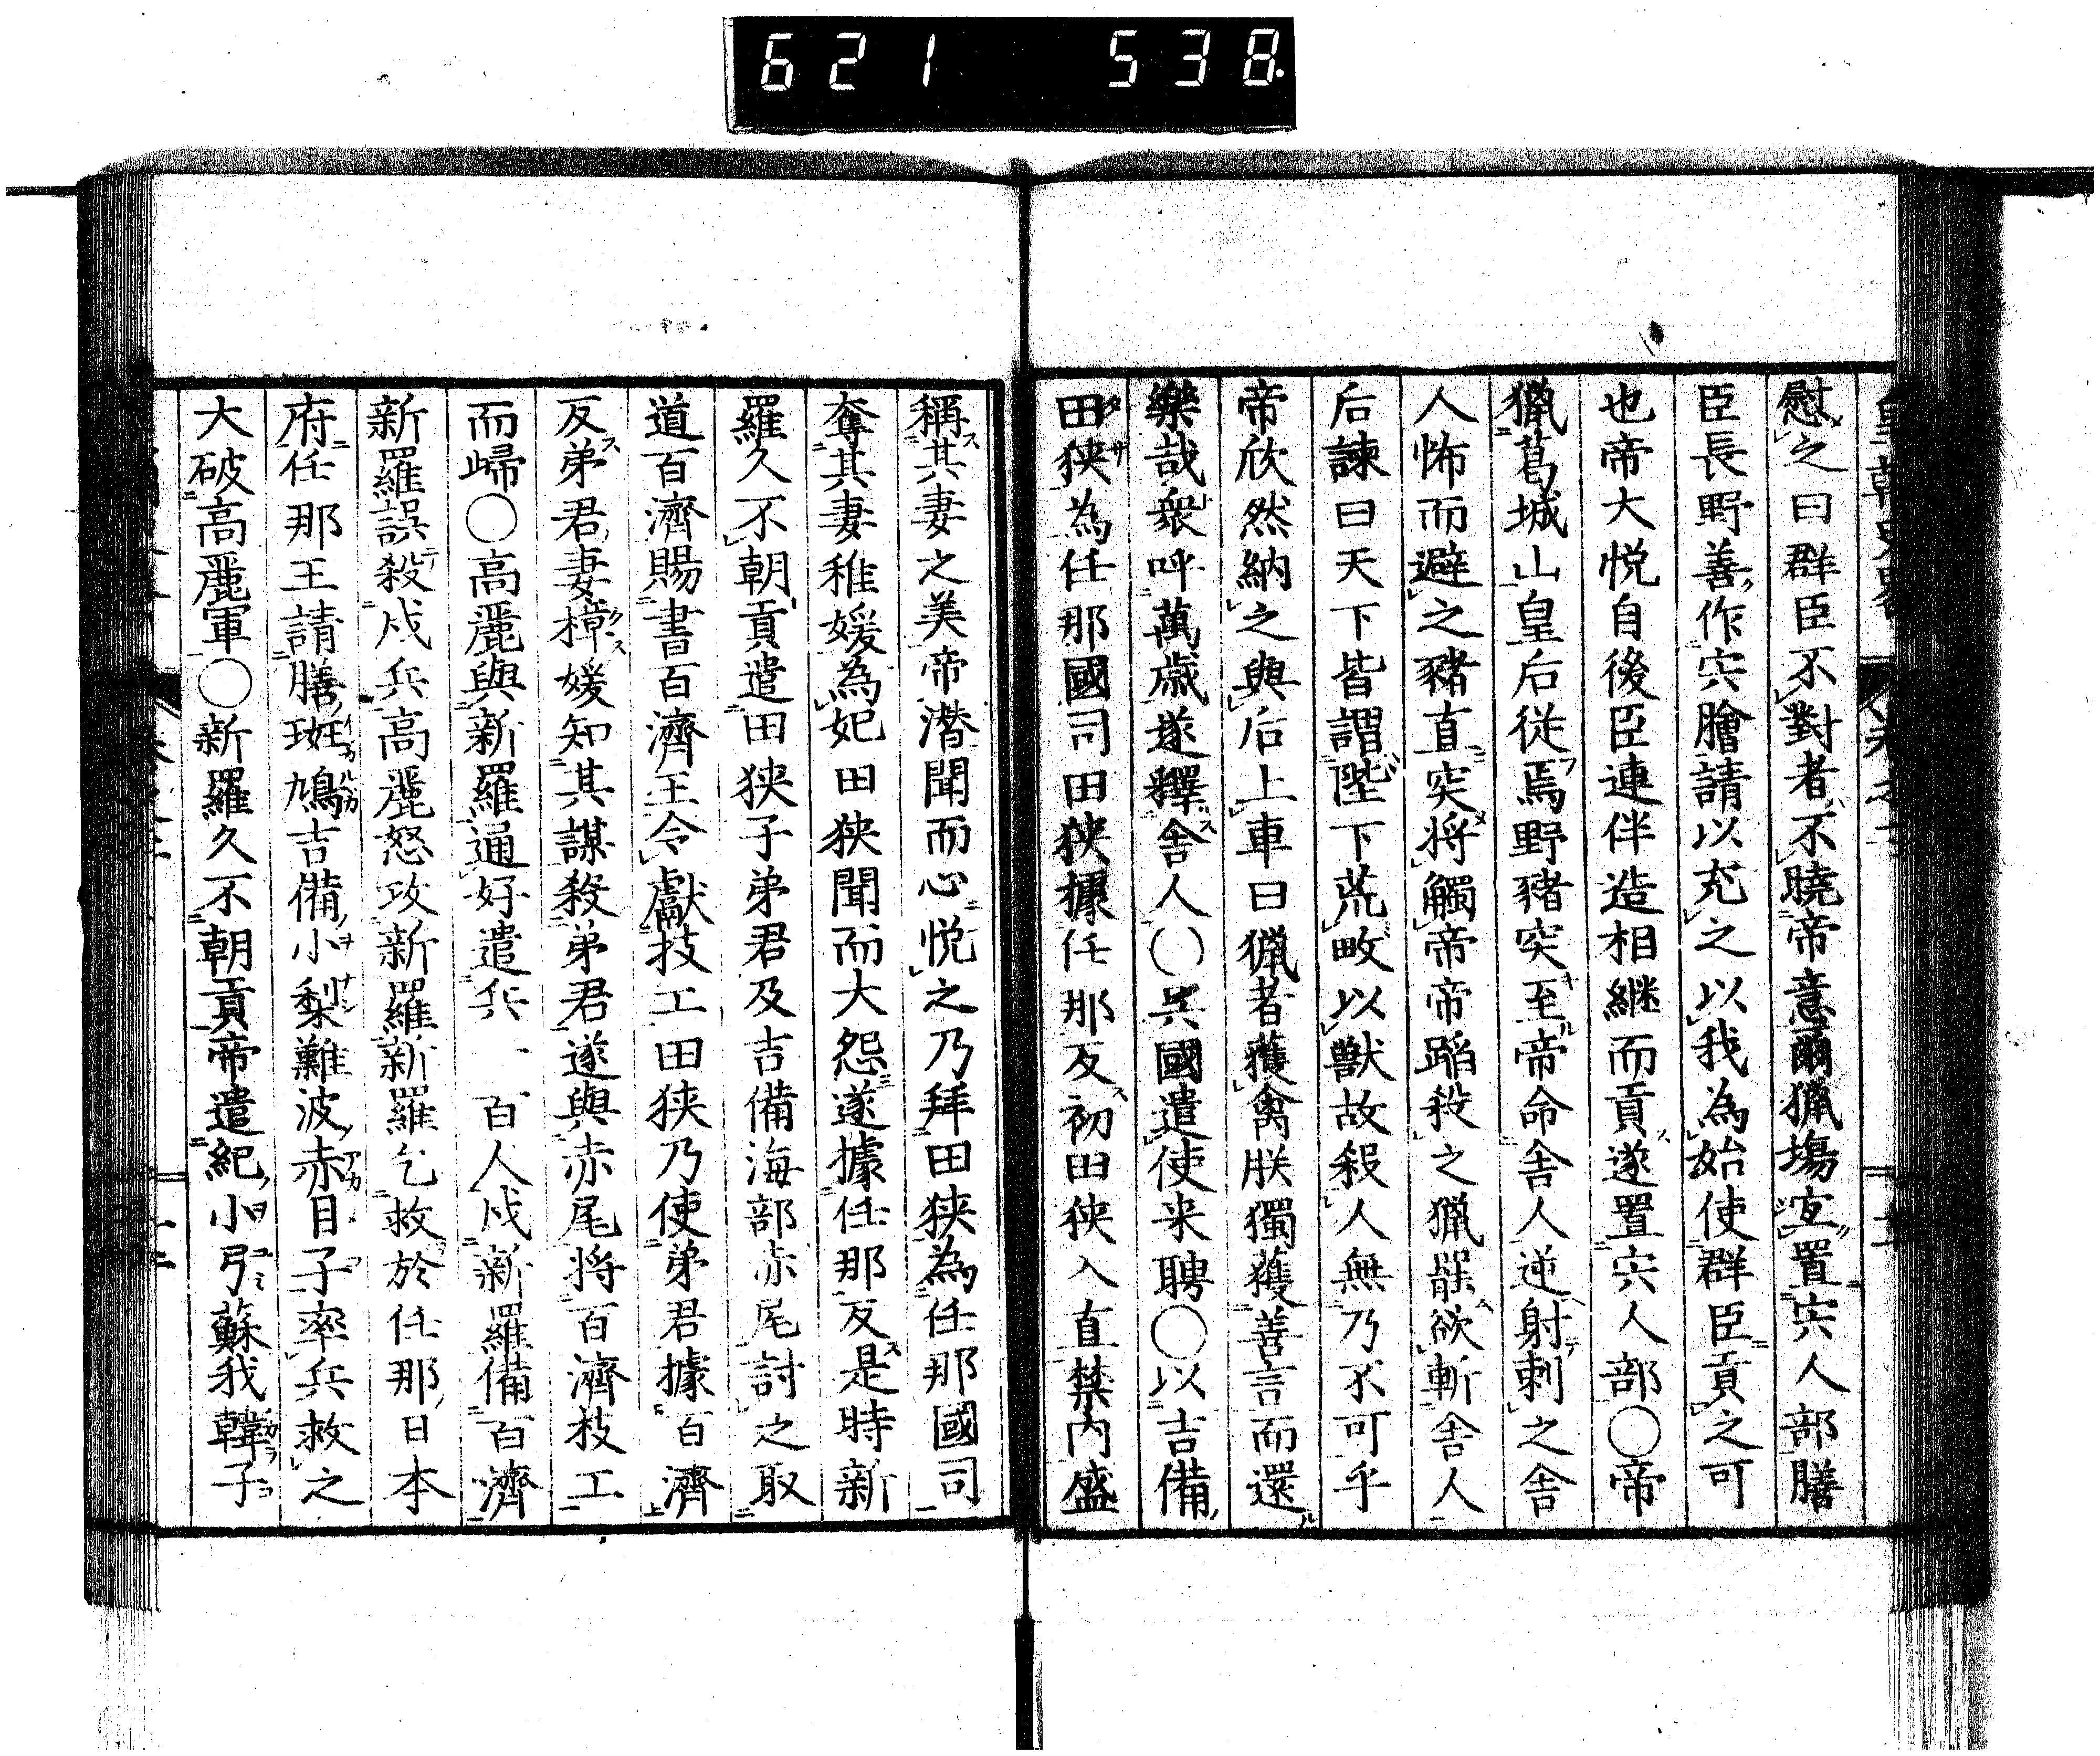 621 538.
慰之曰群臣不對者不曉帝意爾獵場宜置宍人部膳
臣長野善作宍膾請以充之以我為始使群臣貢之可
也帝大悦自後臣連伴造相継而貢遂置宍人部○帝
獵葛城山皇后従焉野豬突至帝命舎人逆射刺之舎
人怖而避之豬直突将觸帝帝蹈殺之獵罷欲斬舎人
后諫曰天下皆謂陛下荒畋以獣故殺人無乃不可乎
帝欣然納之與后上車曰獵者獲禽朕獨獲善言而還
樂哉衆呼萬歳遂釋舎人○呉國遣使来聘○以吉備
田狭為任那國司田狭據任那反初田狭入直禁内盛
稱其妻之美帝潜聞而心悦之乃拜田狭為任那國司
奪其妻稚媛為妃田狭聞而大怨遂據任那反是時新
羅久不朝貢遣田狭子弟君及吉備海部赤尾討之取
道百濟賜書百濟王令獻技工田狭乃使弟君據百濟
反弟君妻樟媛知其謀殺弟君遂與赤尾将百濟技工
而歸○高麗與新羅通好遣兵一百人戍新羅備百濟
新羅誤殺戍兵高麗怒攻新羅新羅乞救於任那日本
府任那王請膳斑鳩吉備小梨難波赤目子率兵救之
大破高麗軍○新羅久不朝貢帝遣紀小弓蘇我韓子